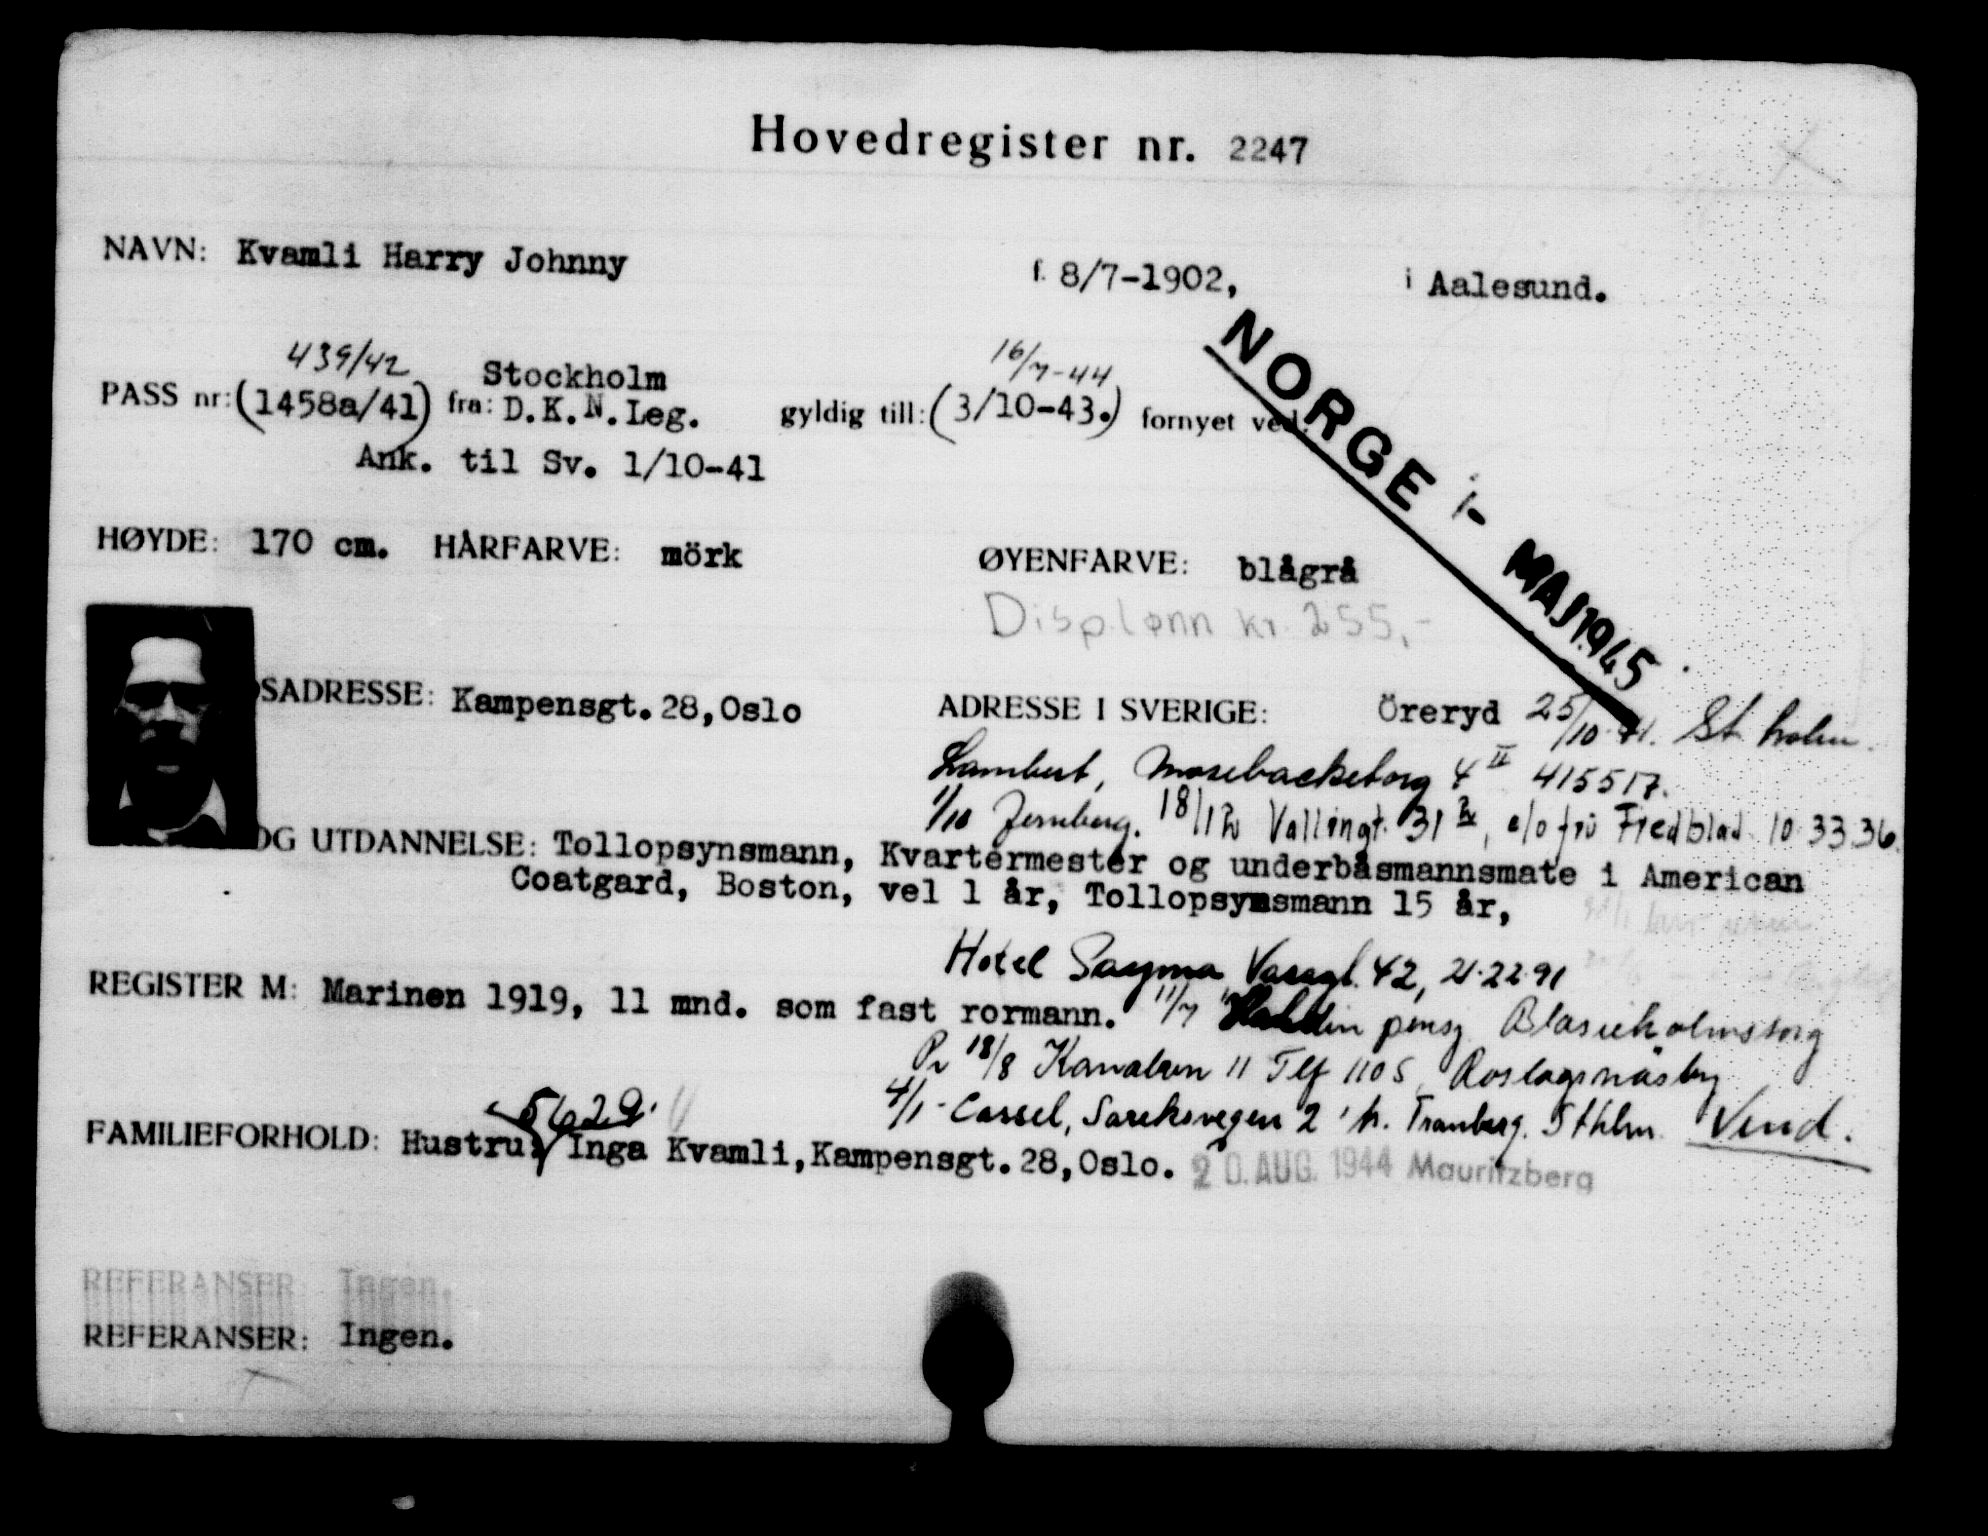 Hovedregister nr. 2247
NAVN: Kvamli Harry Johnny f. 8/7-1902, i Aalesund.
439/42 Stockholm 16/7-44
PASS nr: (1458a/41) fra: D.K.N.Leg. gyldig till: (3/10-43.) fornyet ved:
Ank. til Sv. 1/10-41
NORGE i- MAJ 1945
HØYDE: 170 cm. HÅRFARVE: mörk ØYENFARVE: blågrå
Disp.lønn kr. 255,-
SADRESSE: Kampensgt.28,Oslo ADRESSE I SVERIGE: Öreryd 25/10-41. St.holm.
Lambert, Mosebacketorg 4 II 415517.
1/10 Jernberg. 18/1 Vallingt. 31, c/o fru Fredblad 10 33 36.
OG UTDANNELSE: Tollopsynsmann, Kvartermester og underbåsmannsmate i American
Coatgard, Boston, vel 1 år, Tollopsynsmann 15 år,
Hotel Vasagt. 42, 21-22-91
REGISTER M: Marinen 1919, 11 mnd. som fast rormann. 11/7 pensj. Blasieholmstorg
18/8 11 Tlf 1105 Roslagsnäsby
5629. 4/1- Cassel, Sareksvegen 2 Tranberg. Sthlm. Vend.
FAMILIEFORHOLD: Hustru: Inga Kvamli,Kampensgt.28,Oslo. 20. AUG. 1944 Mauritzberg
REFERANSER: Ingen.
REFERANSER: Ingen.